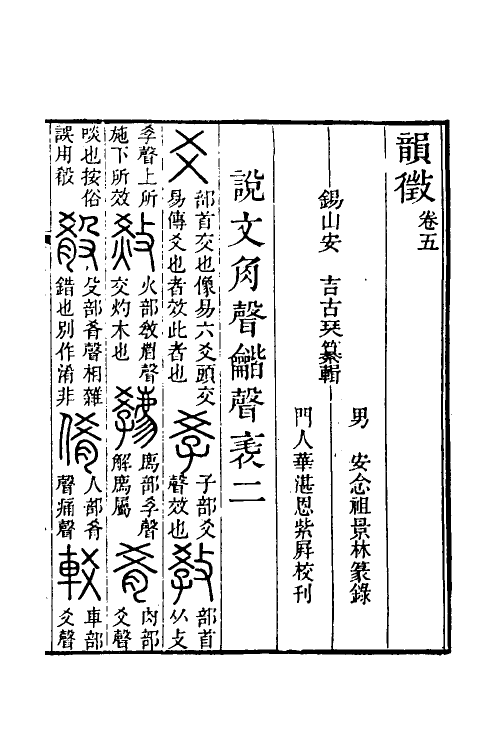 韻徵卷五
錫山安　吉古琴纂輯
男　安念祖景林篆錄
門人華湛恩紫屏校刊
說文角聲龤聲表二
爻部首交也像易六爻頭交易傳爻也者效此者也𡥈子部爻聲效也教部首从攴
𡥈聲上所施下所效𤈦火部教省聲交灼木也𢨋廌部𡥈聲解廌屬肴肉部爻聲
啖也按俗誤用殽殽殳部肴聲相雜錯也別作淆非倄人部肴聲痛聲較車部爻聲